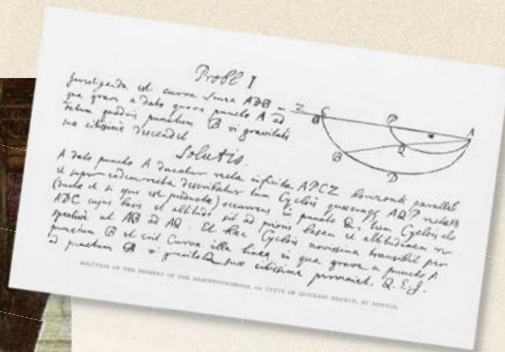 Probl I
Investiganda est curva Linea ADB in
qua grave a dato quovis puncto A ad
datum quodvis punctum B vi gravitatis
suæ citissime descendet
Solutio.
A dato puncto A ducatur recta infinita APCZ horizonti parallela
et super eadem recta describatur tum Cyclois quæcunque AQP rectæ AB
(ducta et si opus est producta) occurrens in puncto Q, tum Cyclois alia
ADC cujus basis et altitudo sit ad prioris basem et altitudinem re-
spective ut AB ad AQ. Et hæc Cyclois novissima transibit per
punctum B et erit Curva illa linea in qua grave a puncto A
ad punctum B vi gravitatis suæ citissime perveniet. Q.E.I.
Z C P A
B Q
B D
SOLUTION OF THE PROBLEM OF THE BRACHISTOCHRONE, OR CURVE OF QUICKEST DESCENT, BY NEWTON.